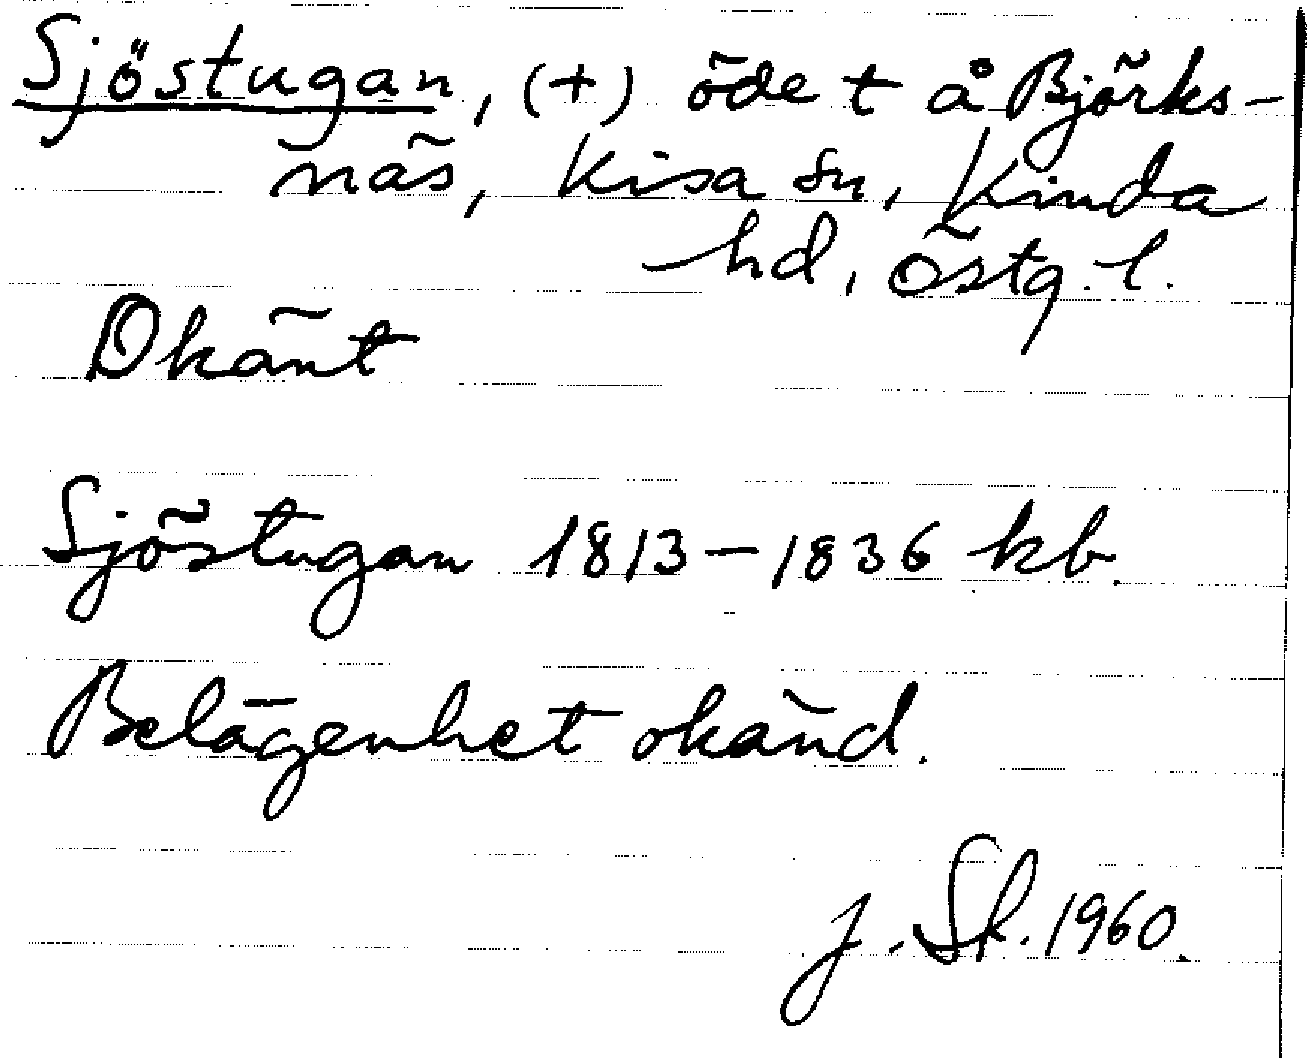 Sjöstugan, (+) öde t å Björks-
näs, Kisa sn, Kinda
hd, Östg. l.
Okänt
Sjöstugan 1813–1836 kb.
Belägenhet okänd.
J. Sk. 1960.